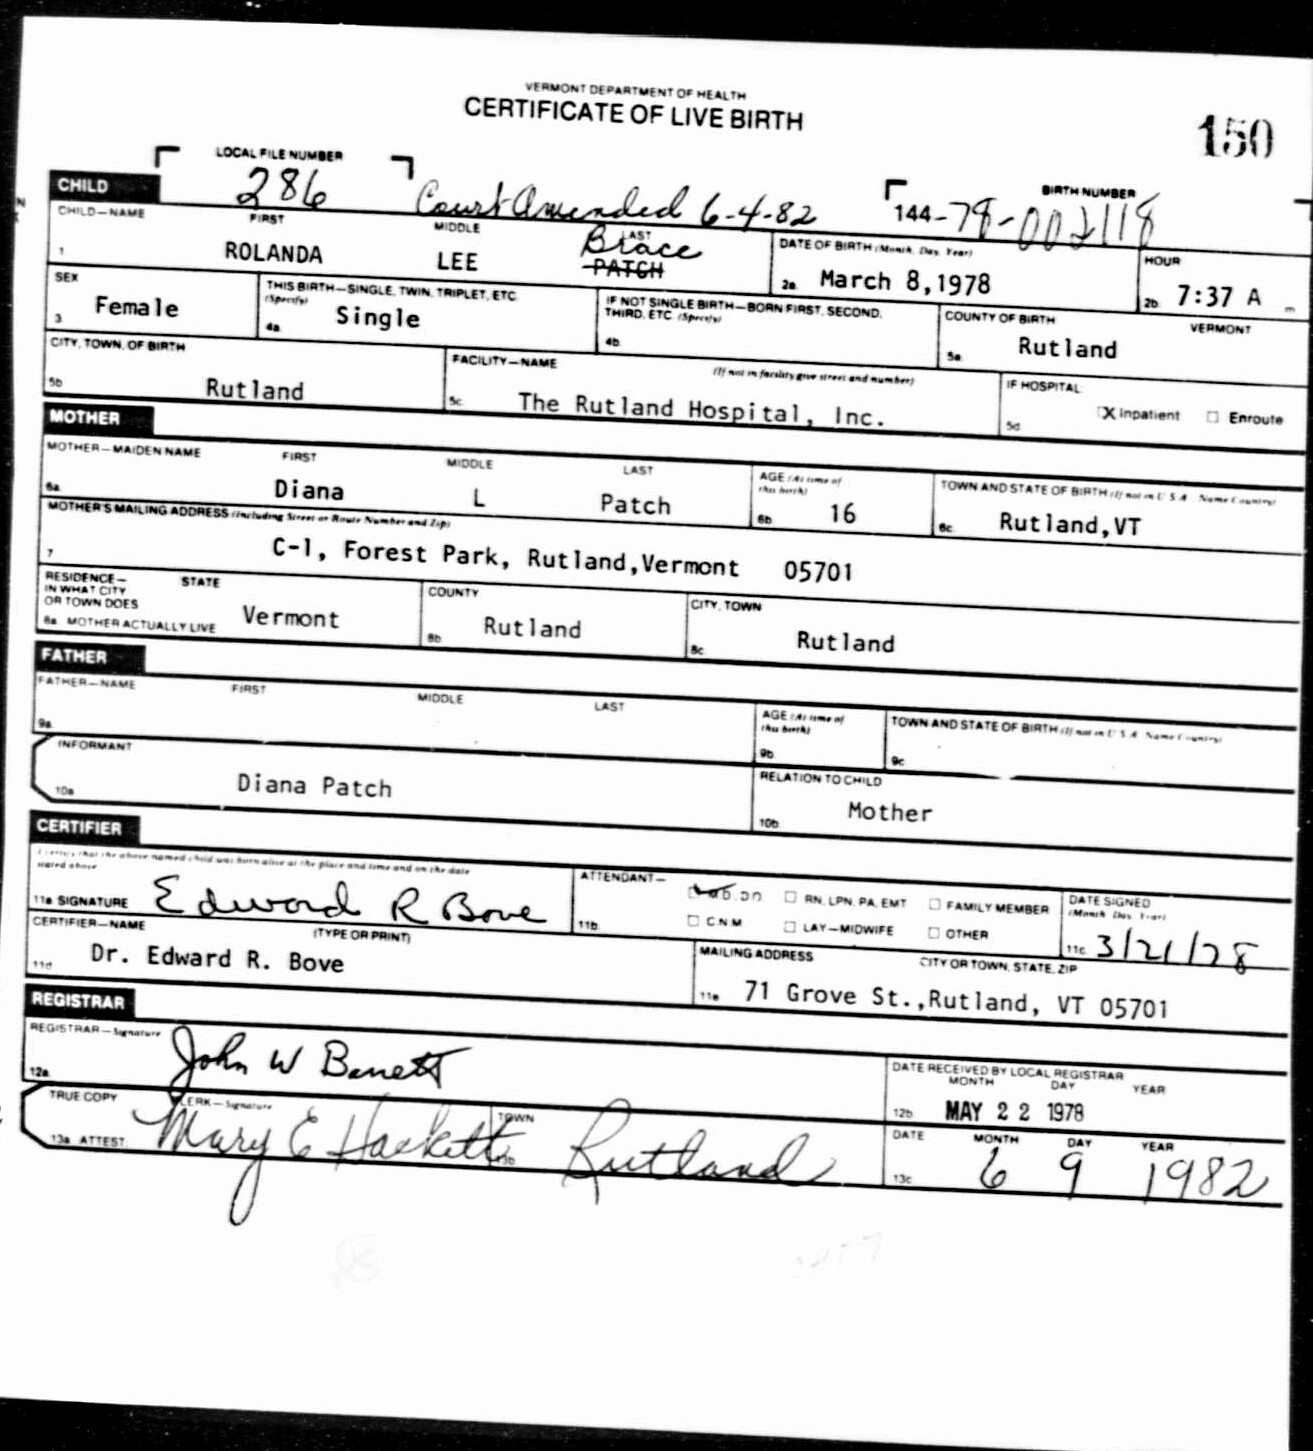 VERMONT DEPARTMENT OF HEALTH
CERTIFICATE OF LIVE BIRTH
150
LOCAL FILE NUMBER
286
Court Amended 6-4-82
BIRTH NUMBER
144-78-002118
CHILD
CHILD—NAME FIRST MIDDLE LAST
1 ROLANDA LEE Brace PATCH
DATE OF BIRTH (Month, Day, Year)
2a. March 8,1978
HOUR
2b. 7:37 A m
SEX
3. Female
THIS BIRTH—SINGLE, TWIN, TRIPLET, ETC.
(Specify)
4a. Single
IF NOT SINGLE BIRTH—BORN FIRST, SECOND,
THIRD, ETC. (Specify)
4b.
COUNTY OF BIRTH VERMONT
5a. Rutland
CITY, TOWN, OF BIRTH
5b Rutland
FACILITY—NAME (If not in facility give street and number)
5c. The Rutland Hospital, Inc.
IF HOSPITAL:
5d X Inpatient Enroute
MOTHER
MOTHER—MAIDEN NAME FIRST MIDDLE LAST
6a. Diana L Patch
AGE (At time of
this birth)
6b 16
TOWN AND STATE OF BIRTH (If not in U.S.A. Name Country)
6c. Rutland,VT
MOTHER'S MAILING ADDRESS (Including Street or Route Number and Zip)
7 C-1, Forest Park, Rutland,Vermont 05701
RESIDENCE— STATE
IN WHAT CITY
OR TOWN DOES
8a MOTHER ACTUALLY LIVE Vermont
COUNTY
8b. Rutland
CITY, TOWN
8c. Rutland
FATHER
FATHER—NAME FIRST MIDDLE LAST
9a.
AGE (At time of
this birth)
9b.
TOWN AND STATE OF BIRTH (If not in U.S.A. Name Country)
9c.
INFORMANT
10a Diana Patch
RELATION TO CHILD
10b. Mother
CERTIFIER
I certify that the above named child was born alive at the place and time and on the date
stated above
11a SIGNATURE Edward R Bove
ATTENDANT—
11b.
RN, LPN, PA, EMT FAMILY MEMBER
C.N.M LAY—MIDWIFE OTHER
DATE SIGNED
(Month Day Year)
11c. 3/21/78
CERTIFIER—NAME (TYPE OR PRINT)
11d Dr. Edward R. Bove
MAILING ADDRESS CITY OR TOWN, STATE, ZIP
11e 71 Grove St.,Rutland, VT 05701
REGISTRAR
REGISTRAR—Signature
12a. John W Barrett
DATE RECEIVED BY LOCAL REGISTRAR
MONTH DAY YEAR
12b MAY 22 1978
TRUE COPY CLERK—Signature
13a ATTEST: Mary E Hackett
TOWN
13b Rutland
DATE MONTH DAY YEAR
13c 6 9 1982